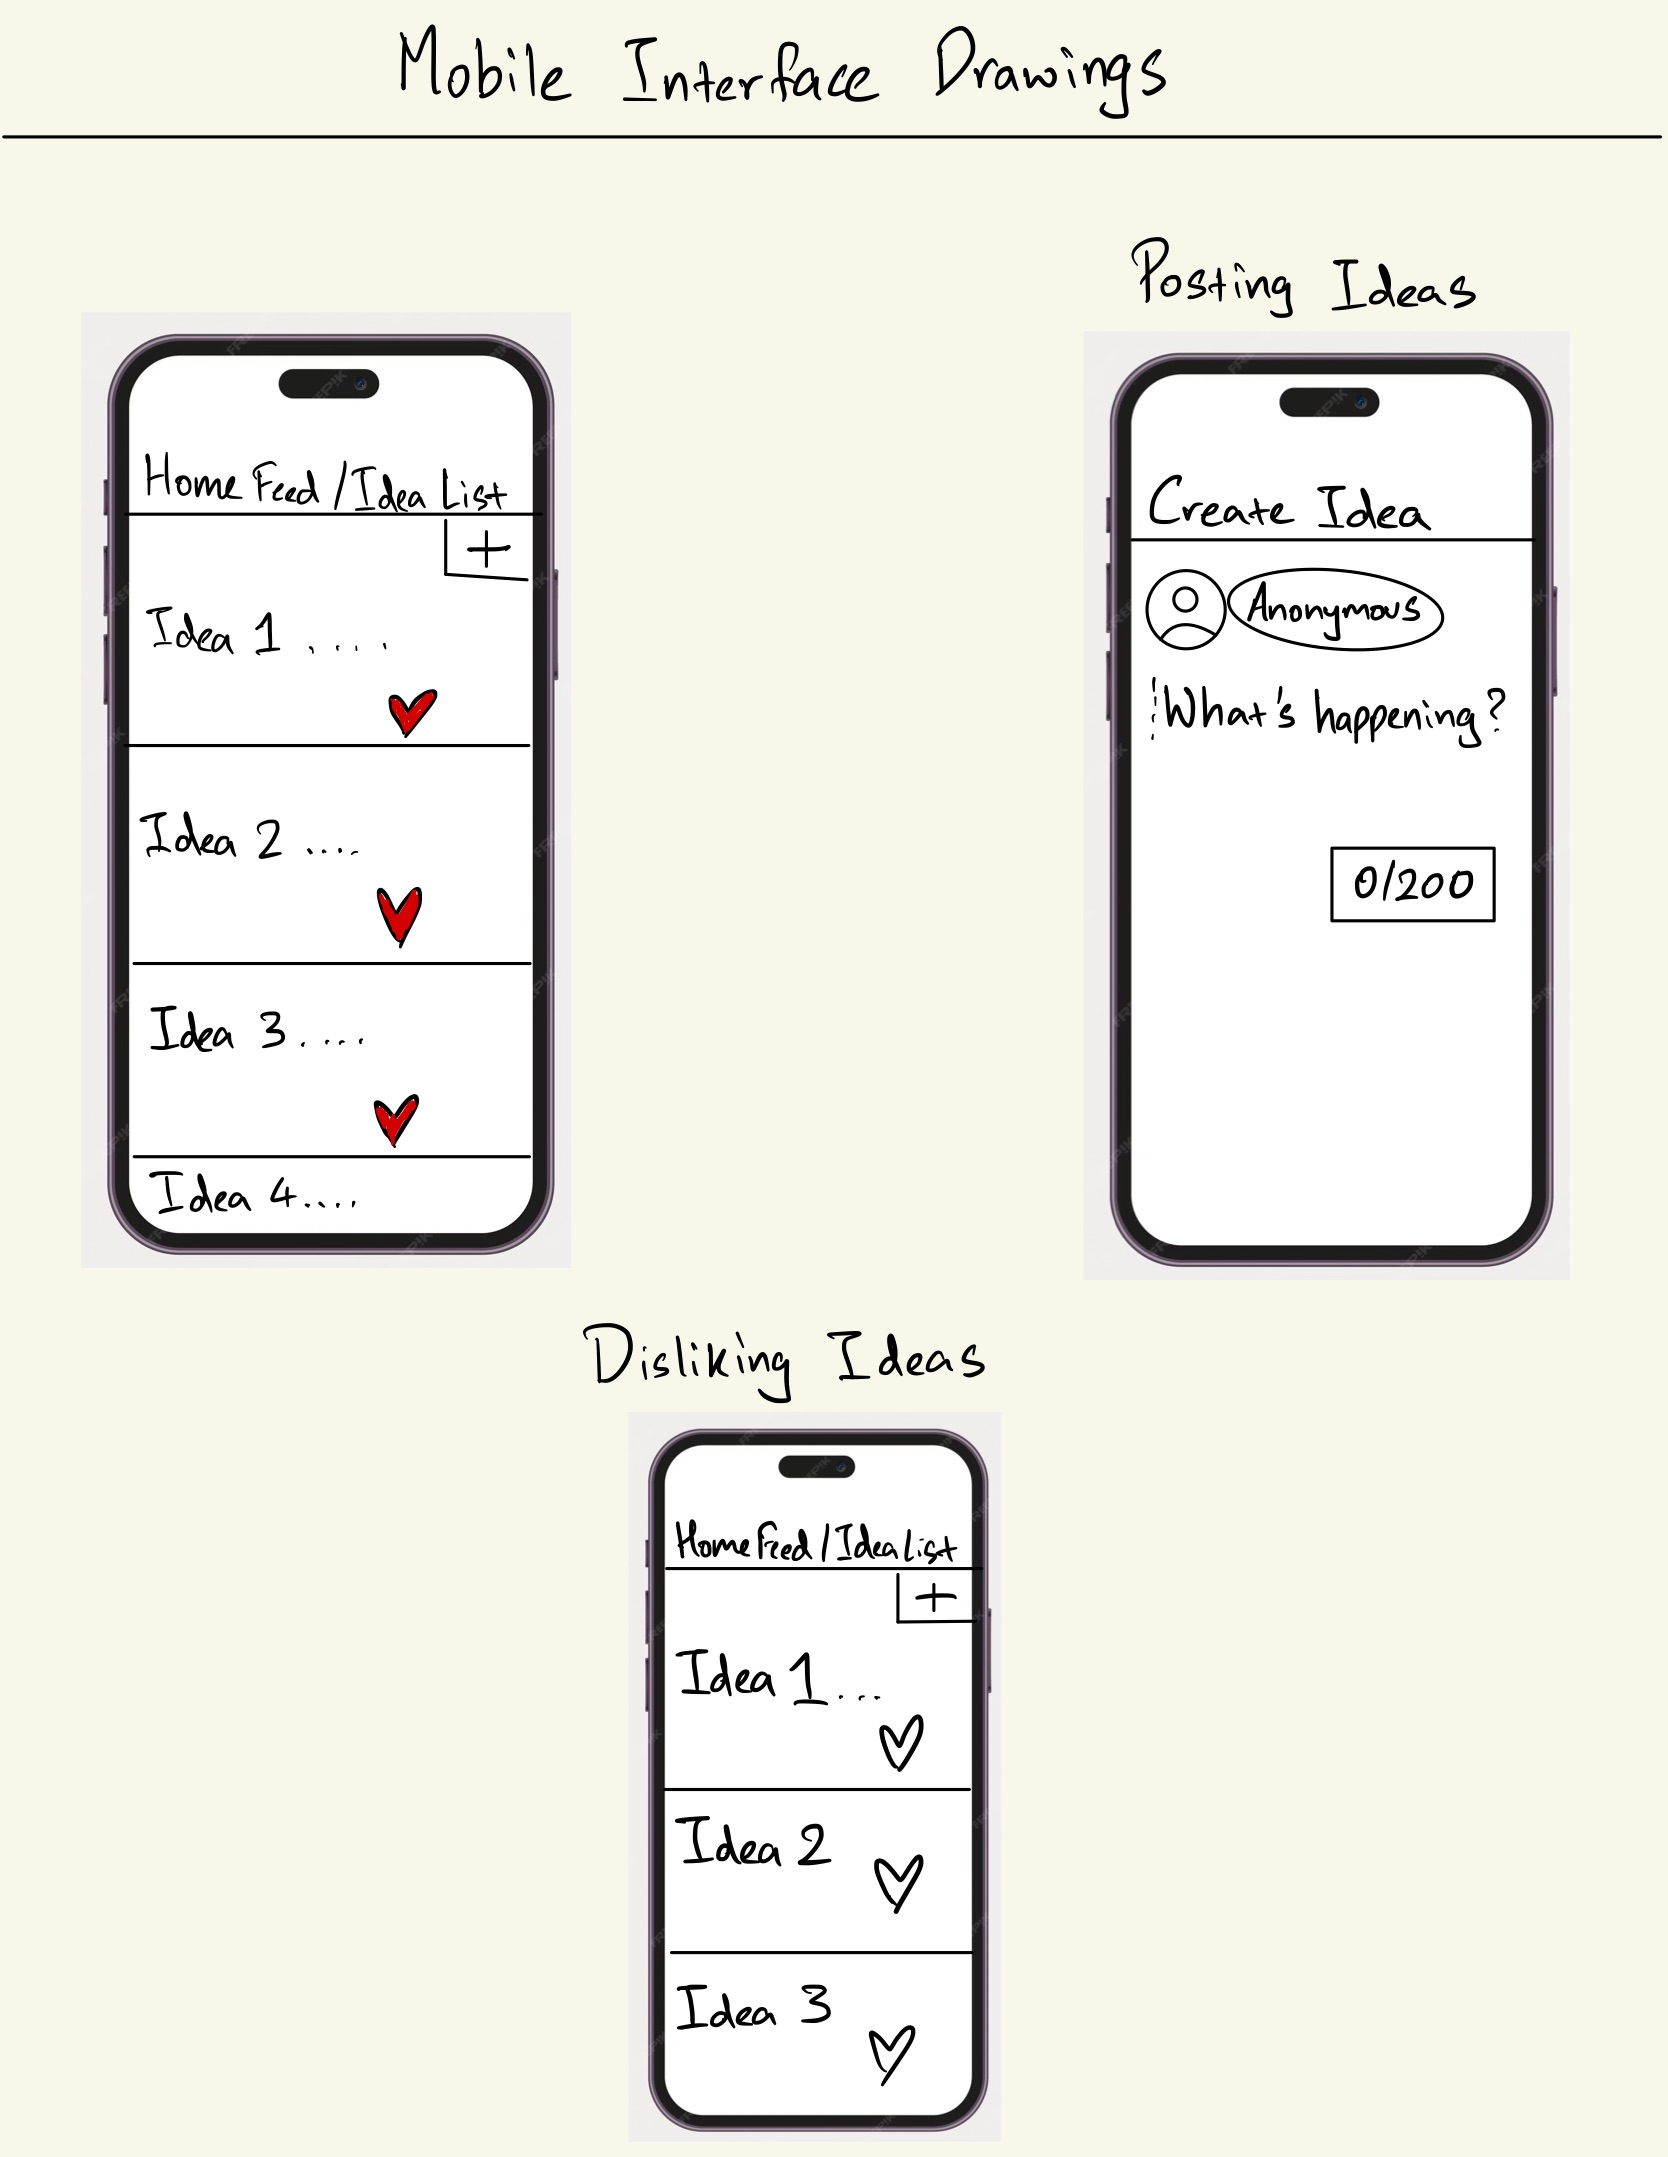 Mobile Interface Drawings
Home Feed / Idea List
+
Idea 1 ....
Idea 2 ....
Idea 3 ....
Idea 4....
Posting Ideas
Create Idea
Anonymous
What's happening?
0/200
Disliking Ideas
Home Feed / Idea List
+
Idea 1 ...
Idea 2
Idea 3